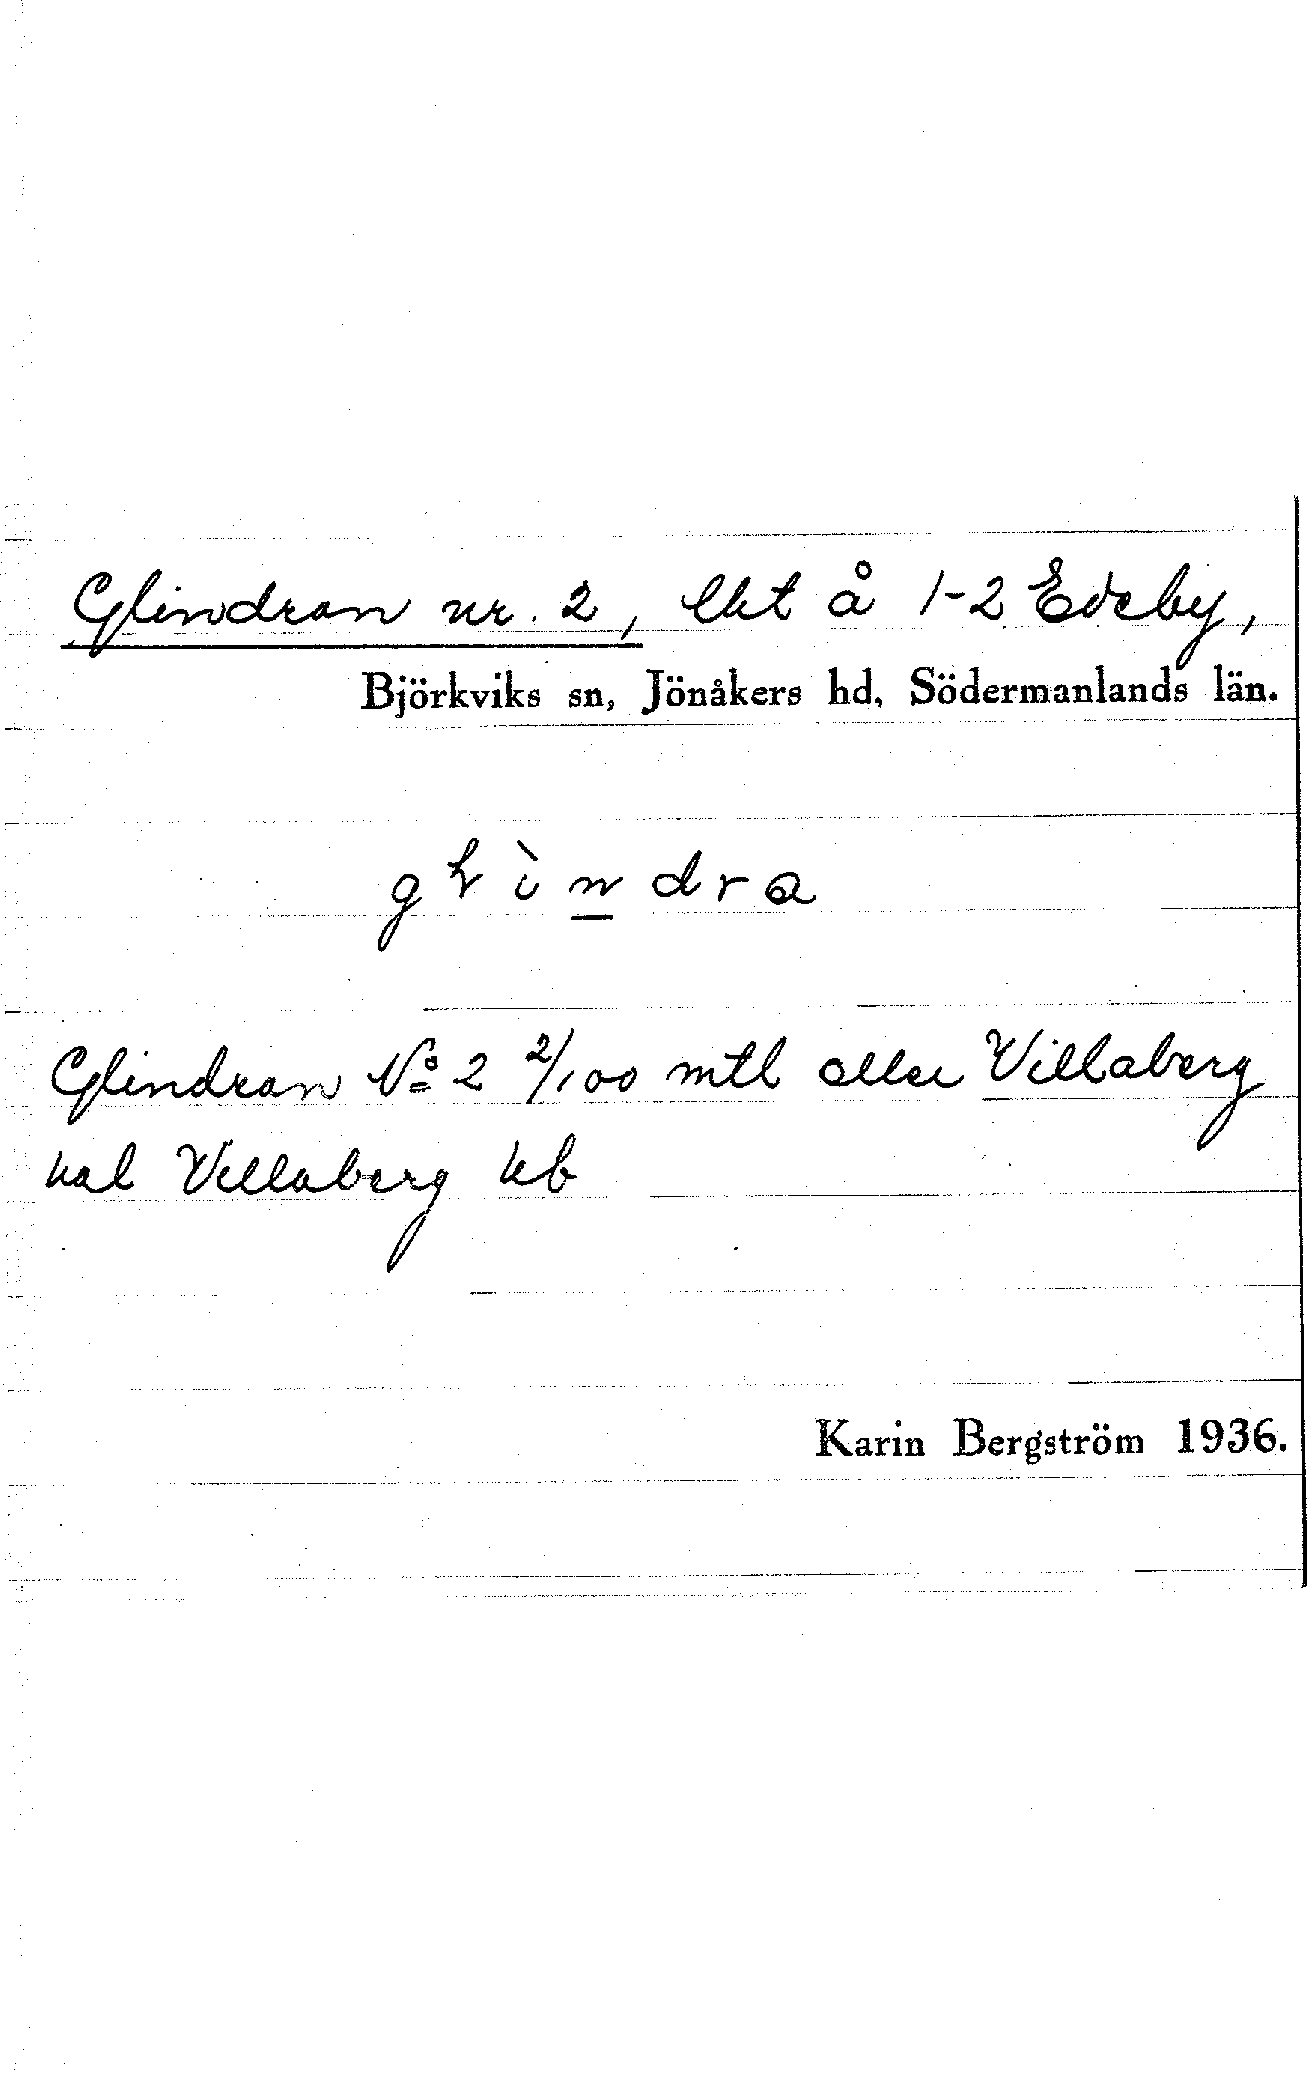 Glindran nr. 2, lht å 1-2 Edeby,
Björkviks sn, Jönåkers hd, Södermanlands län.
Glindran No 2 2/100 mtl eller Villaberg
hal Villaberg kb
Karin Bergström 1936.